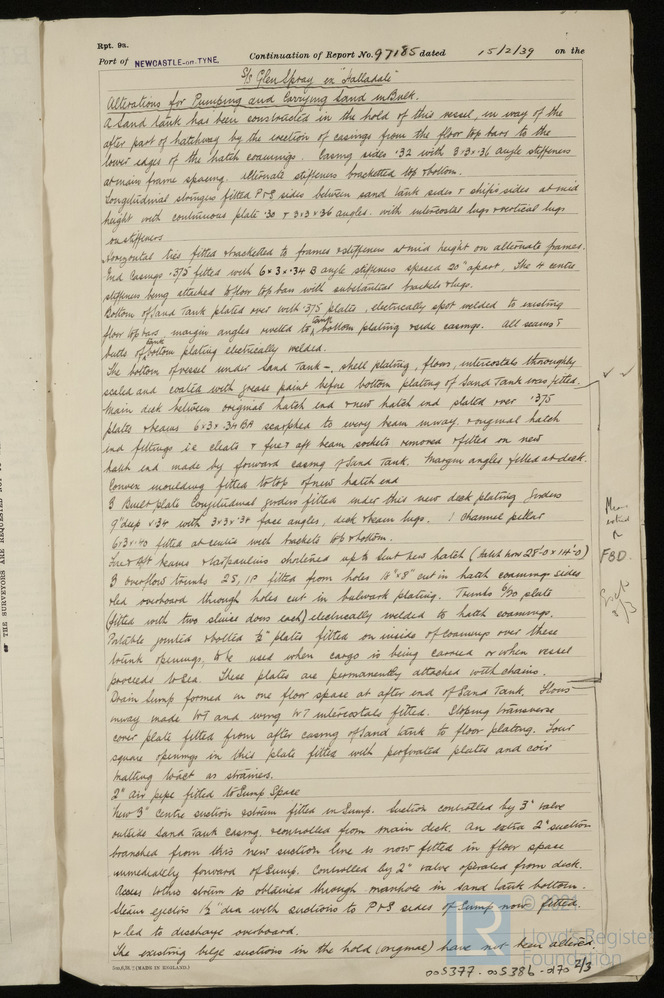 Rpt. 9a.
Port of NEWCASTLE-on-TYNE. Continuation of Report No. 97185 dated 15/2/39 on the
S/S Glen Spray ex "Halladale"
Alterations for Pumping and Carrying Sand in Bulk.
A Sand tank has been constructed in the hold of this vessel, in way of the
after part of hatchway by the erection of casings from the floor top bars to the
lower edges of the hatch coamings. Casing sides .32 with 3×3×.36 angle stiffeners
at main frame spacing. Alternate stiffeners bracketted top & bottom.
Longitudinal stringer fitted P&S sides between sand tank sides & ship's sides at mid
height with continuous plate .30 & 3×3×.36 angles. with intercostal lugs & vertical lugs
on stiffeners
Horizontal ties fitted & bracketed to frames & stiffeners at mid height on alternate frames.
End Casings .375 fitted with 6×3×.34 B angle stiffeners spaced 20" apart. The 4 centre
stiffeners being attached to floor top bars with substantial brackets & lugs.
Bottom of Sand Tank plated over with .375 plates, electrically spot welded to existing
floor top bars, margin angles rivetted to tank bottom plating & side casings. All seams &
butts of tank bottom plating electrically welded.
The bottom of vessel under Sand Tank -, shell plating, floors, intercostals thoroughly
scaled and coated with grease paint before bottom plating of Sand Tank was fitted.
Main deck between original hatch end & new hatch end plated over .375
plates & beams 6×3×.34 BA scarphed to every beam inway, & original hatch
end fittings i.e cleats & fore & aft beam sockets removed & fitted on new
hatch end made by forward casing of Sand Tank. Margin angles fitted at deck.
Convex moulding fitted to top of new hatch end
3 Built plate Longitudinal girders fitted under this new deck plating Girders
9" deep × .34 with 3×3×.34 face angles, deck & beam lugs. 1 Channel pillar
6×3×.40 fitted at centre with brackets top & bottom.
Fore & Aft beams & tarpaulins shortened up to suit new hatch (hatch now 28'-0 × 14'-0)
3 overflow trunks 2S, 1P fitted from holes 18" × 8" cut in hatch coamings sides
& led overboard through holes cut in bulwark plating. Trunks 6/20 plate
(fitted with two sluice doors each) electrically welded to hatch coamings.
Portable jointed & bolted ½" plates fitted on inside of coamings over these
trunk openings, to be used when cargo is being carried or when vessel
proceeds to Sea. These plates are permanently attached with chains.
Drain Sump formed in one floor space at after end of Sand Tank. Floors
inway made WT and wing WT intercostals fitted. Sloping transverse
cover plate fitted from after casing of Sand tank to floor plating. Four
square openings in this plate fitted with perforated plates and coir
matting to act as strainers.
2" air pipe fitted to Sump Space
New 3" centre suction & strum fitted in Sump. Suction controlled by 3" valve
outside Sand Tank Casing. & controlled from main deck. An extra 2" suction
branched from this new suction line is now fitted in floor space
immediately forward of Sump. Controlled by 2" valve operated from deck.
Access to this strum is obtained through manhole in sand tank bottom.
Steam ejectors 1½" dia with suctions to P&S sides of Sump now fitted
& led to discharge overboard.
The existing bilge suctions in the hold (original) have not been altered
FBD.
2/3
© 20
Lloyd's Register
Foundation
5m,6,38. (MADE IN ENGLAND.)
005377-005386-0170 2/3
THE SURVEYORS ARE REQUESTED NOT TO